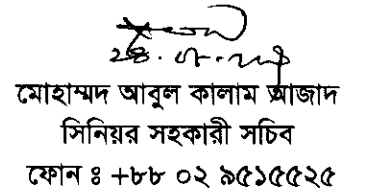 মোহাম্মদ আবুল কালাম আজাদ
সিনিয়র সহকারী সচিব
ফোন ঃ +৮৮ ০২ ৯৫১৫৫২৫